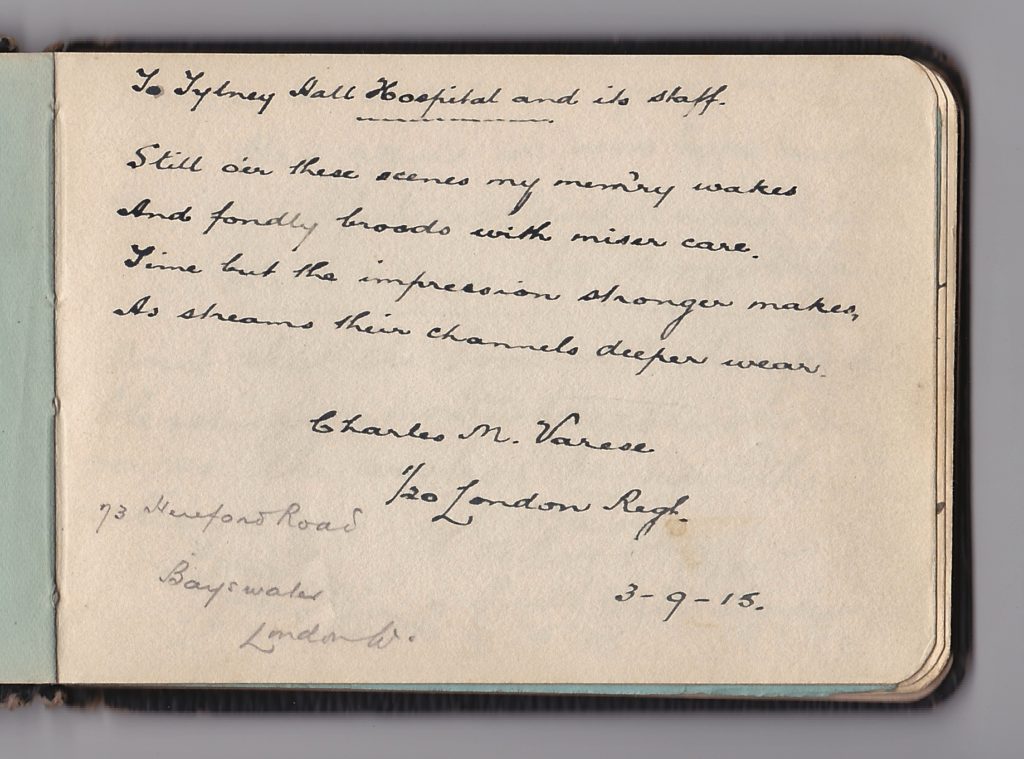 To Tylney Hall Hospital and its staff.
Still o'er these scenes my mem'ry wakes
And fondly broods with miser care.
Time but the impression stronger makes,
As streams their channels deeper wear.
Charles M. Varese
1/20 London Regt.
73 Hereford Road
Bayswater
London W.
3-9-15.